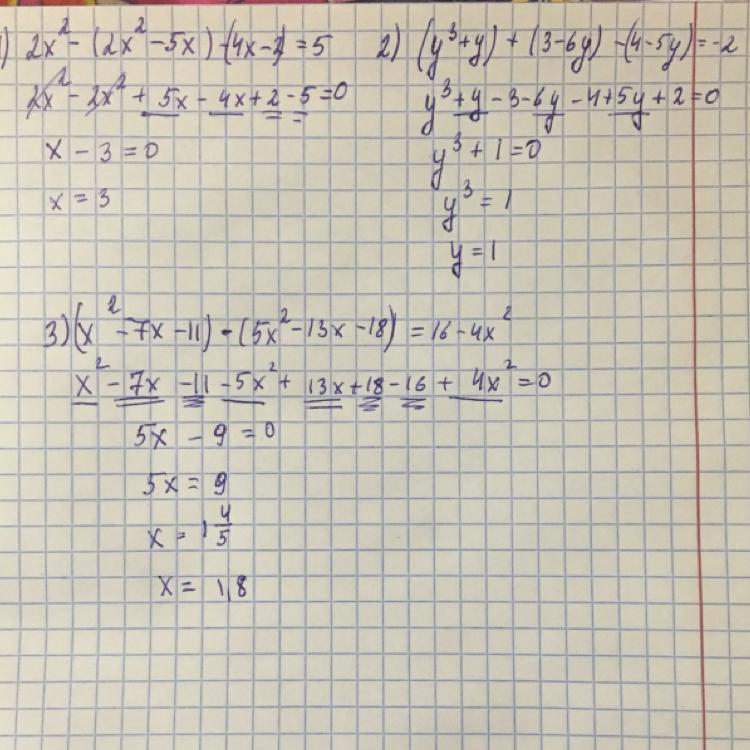 1) 2x² - (2x² - 5x) - (4x - 2) = 5
2x² - 2x² + 5x - 4x + 2 - 5 = 0
x - 3 = 0
x = 3
2) (y³ + y) + (3 - 6y) - (4 - 5y) = -2
y³ + y - 3 - 6y - 4 + 5y + 2 = 0
y³ + 1 = 0
y³ = 1
y = 1
3) (x² - 7x - 11) - (5x² - 13x - 18) = 16 - 4x²
x² - 7x - 11 - 5x² + 13x + 18 - 16 + 4x² = 0
5x - 9 = 0
5x = 9
x = 1 4/5
x = 1,8